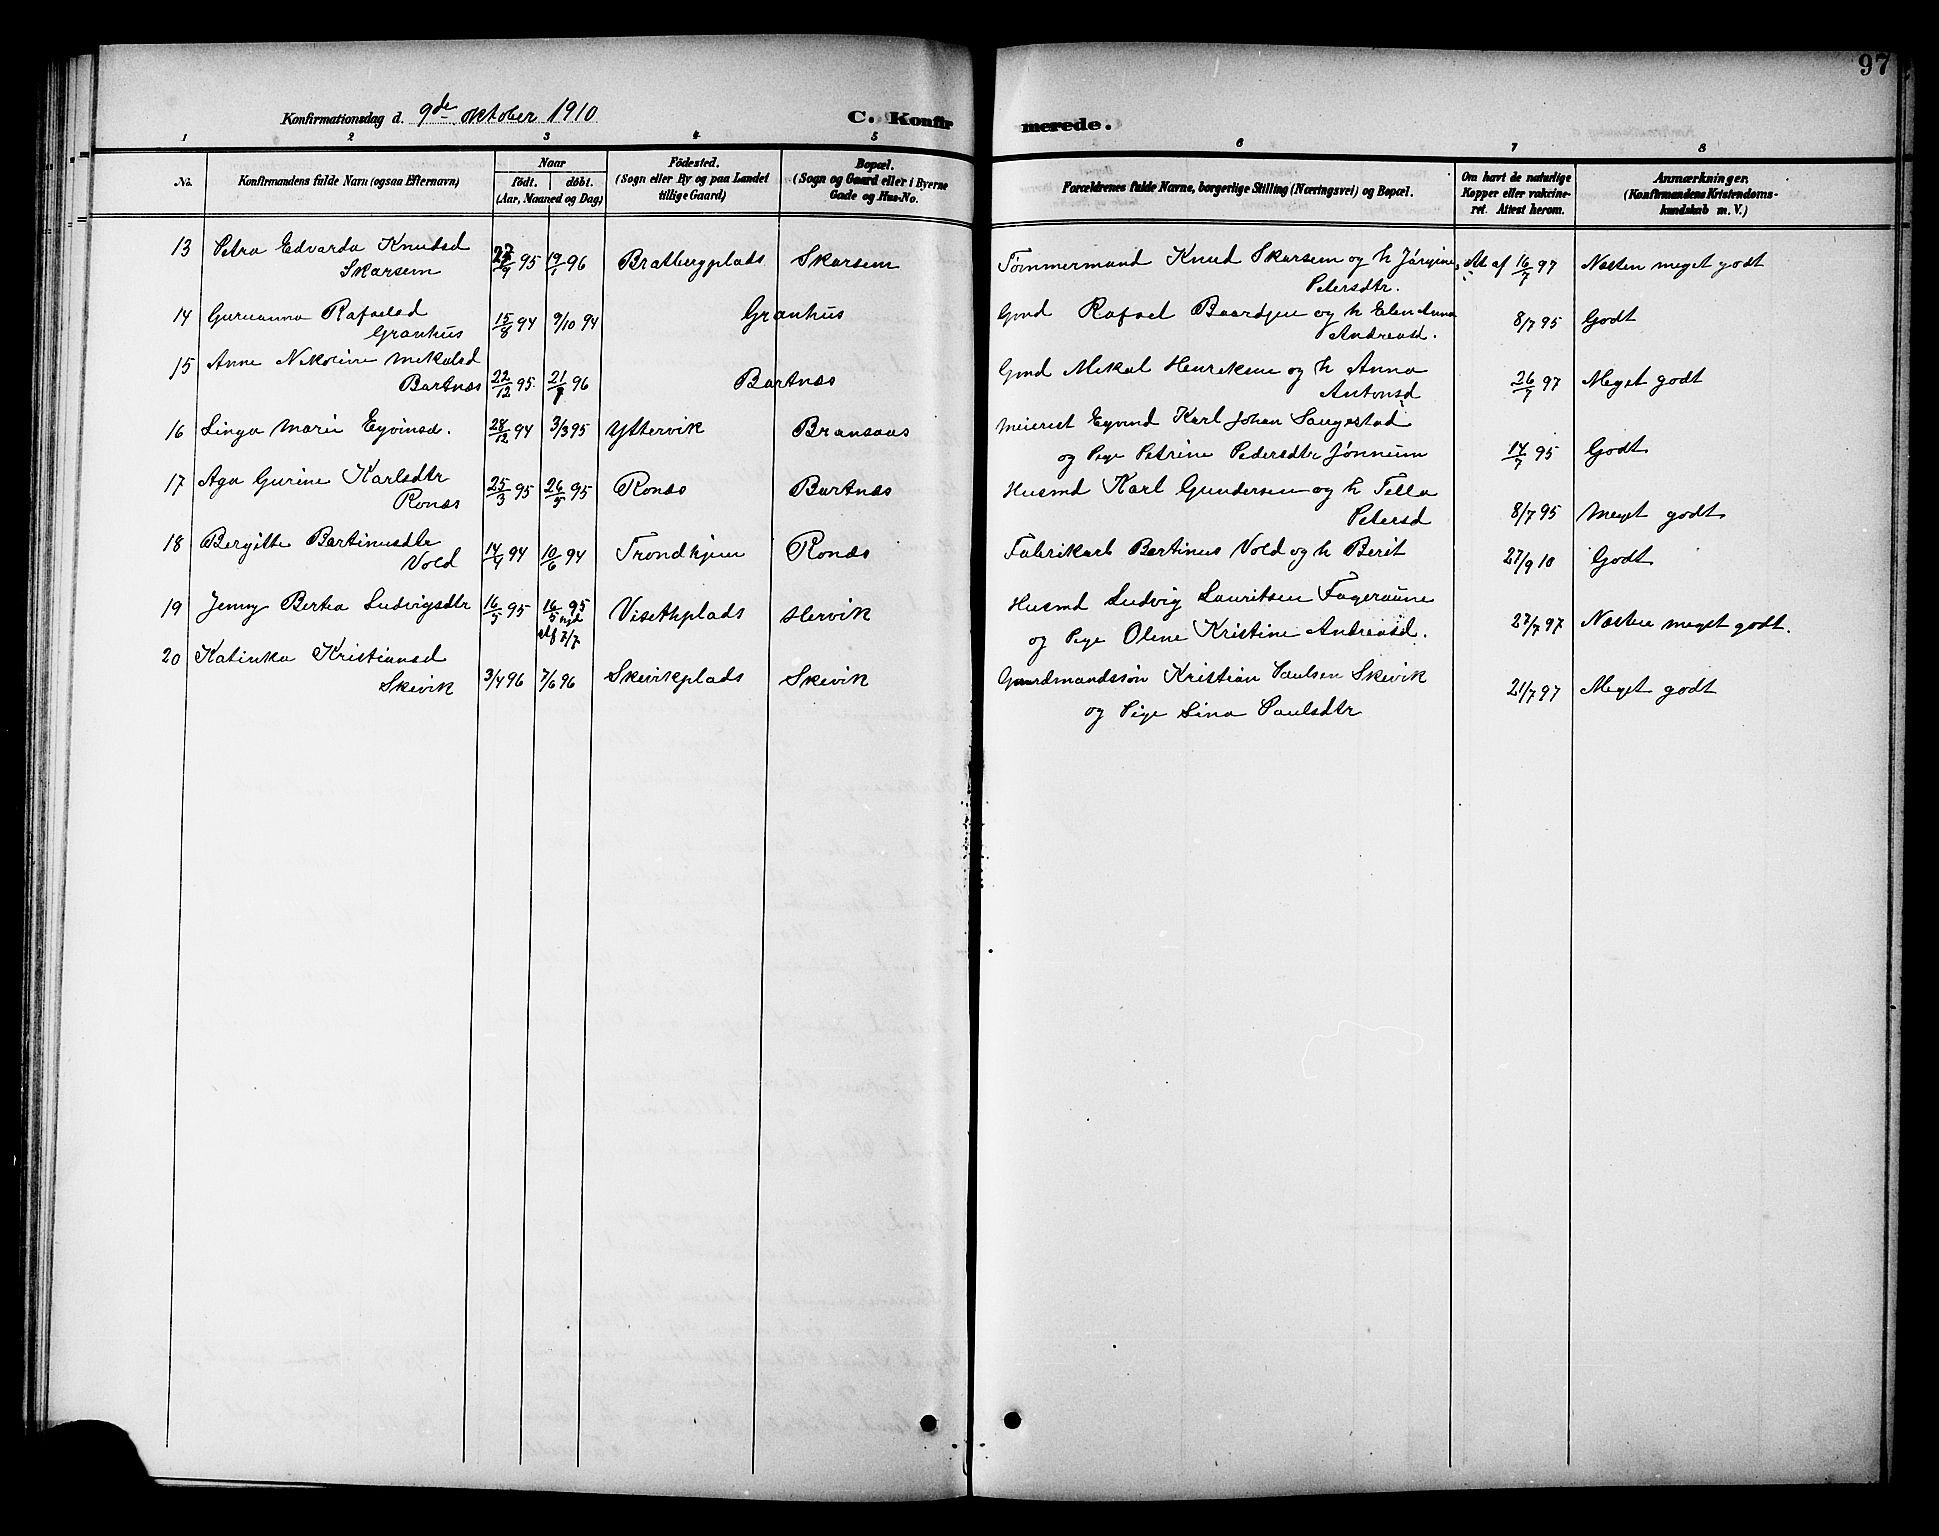 97
Konfirmationsdag d. 9de oktober 1910
C. Konfirmerede.
1 2 3 4 5 6 7 8
No.
Konfirmandens fulde Navn (ogsaa Efternavn)
Naar
født. døbt.
(Aar, Maaned og Dag)
Fødested.
(Sogn eller By og paa Landet
tillige Gaard)
Bopæl.
(Sogn og Gaard eller i Byerne
Gade og Hus-No.
Forældrenes fulde Navne, borgerlige Stilling (Næringsvei) og Bopæl.
Om havt de naturlige
Kopper eller vakcine-
ret. Attest herom.
Anmærkninger,
(Konfirmandens Kristendoms-
kundskab m. V.)
13 Petra Edvarda Knudsd
Skarsem 27/9 95 19/1 96 Bratbergplads Skarsem Tømmermand Knud Skarsem og h Jørgine At af 16/7 97 Næsten meget godt
Petersdtr.
14 Guruanna Rafaelsd
Granhus 15/8 94 9/10 94 Granhus Gmd Rafael Baardsen og h Elen Anna 8/7 95 Godt
Andreasd.
15 Anne Nikoline Mikalsd
Bartnæs 22/12 95 21/ 96 Bartnæs Gmd Mikal Henriksen og h Anna 26/7 97 Meget godt
Antonsd
16 Linga Marie Eyvinsd. 28/12 94 3/3 95 Yttervik Bransaas Meierist Eyvind Karl Johan Saugestad
og Pige Petrine Pedersdtr Jønnum 14/7 95 Godt
17 Aga Gurine Karlsdtr
Ronæs 25/3 95 26/5 95 Ronæs Bartnæs Husmd Karl Gundersen og h Tella
Petersd 8/7 95 Meget godt
18 Bergitte Bertinusdtr
Vold 14/4 94 10/6 94 Trondhjem Ronæs Fabrikarb Bertinus Vold og h Berit 27/9 10 Godt
19 Jenny Bertea Ludvigsdtr 16/5 95 16/5 95 Visethplads Hervik Husmd Ludvig Lauritsen Fageraune
hjd 7/7 og Pige Oline Kristine Andreasd. 27/7 97 Næsten meget godt.
20 Katinka Kristiansd
Skevik 3/4 96 7/6 96 Skevikplads Skevik Gaardmandssøn Kristian Paulsen Skevik
og Pige Lina Paulsdtr 21/7 97 Meget godt